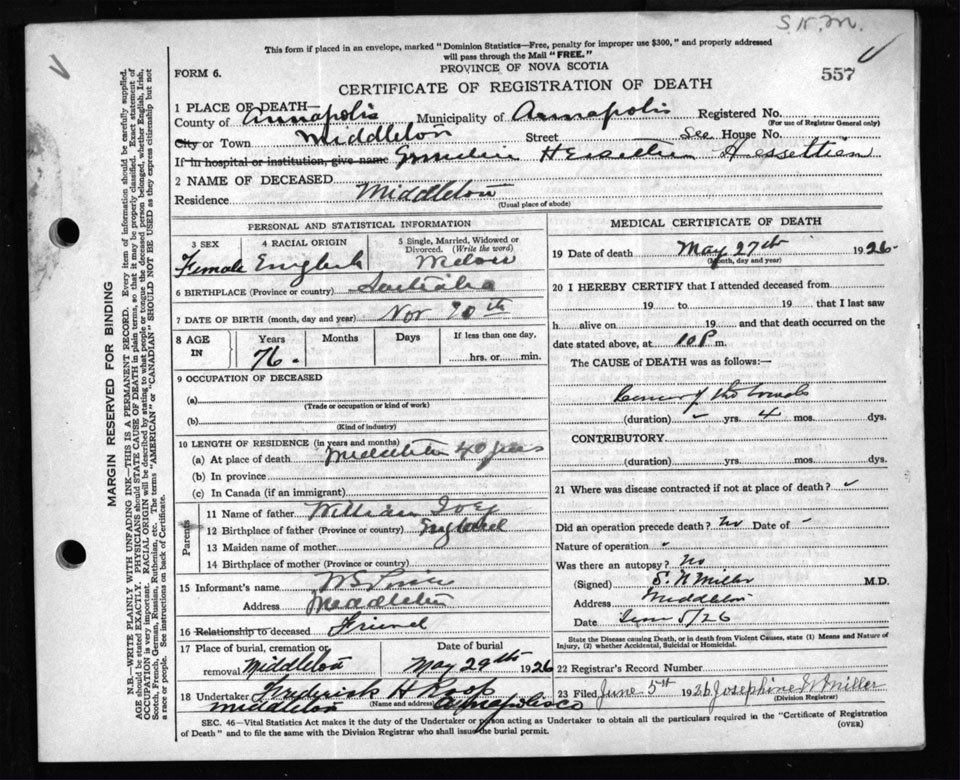 S. N. M.
This form if placed in an envelope, marked "Dominion Statistics—Free, penalty for improper use $300," and properly addressed
will pass through the Mail "FREE."
PROVINCE OF NOVA SCOTIA
557
FORM 6.
CERTIFICATE OF REGISTRATION OF DEATH
1 PLACE OF DEATH—
County of Annapolis Municipality of Annapolis Registered No.
(For use of Registrar General only)
City or Town Middleton Street See House No.
If in hospital or institution, give name
2 NAME OF DECEASED
Residence Middleton
(Usual place of abode)
PERSONAL AND STATISTICAL INFORMATION
3 SEX 4 RACIAL ORIGIN 5 Single, Married, Widowed or Divorced. (Write the word)
Female English
6 BIRTHPLACE (Province or country) Australia
7 DATE OF BIRTH (month, day and year) Nov
8 AGE IN Years Months Days If less than one day, hrs. or min.
76
9 OCCUPATION OF DECEASED
(a)
(Trade or occupation or kind of work)
(b)
(Kind of industry)
10 LENGTH OF RESIDENCE (in years and months)
(a) At place of death Middleton 40 years
(b) In province
(c) In Canada (if an immigrant)
Parents
11 Name of father William
12 Birthplace of father (Province or country) England
13 Maiden name of mother
14 Birthplace of mother (Province or country)
15 Informant's name
Address Middleton
16 Relationship to deceased Friend
17 Place of burial, cremation or removal Middleton Date of burial May 29th 1926
18 Undertaker Frederick H Roop
(Name and address)
Middleton Annapolis co
MEDICAL CERTIFICATE OF DEATH
19 Date of death May 27th 1926
(Month, day and year)
20 I HEREBY CERTIFY that I attended deceased from
19 to 19 that I last saw
h alive on 19 and that death occurred on
date stated above, at 10 P m.
The CAUSE of DEATH was as follows:—
Cancer of the bowels
(duration) yrs. 4 mos. dys.
CONTRIBUTORY
(duration) yrs. mos. dys.
21 Where was disease contracted if not at place of death?
Did an operation precede death? no Date of
Nature of operation
Was there an autopsy? No
(Signed) S. N Miller M.D.
Address Middleton
Date June 5/26
State the Disease causing Death, or in death from Violent Causes, state (1) Means and Nature of
Injury, (2) whether Accidental, Suicidal or Homicidal.
22 Registrar's Record Number
23 Filed June 5th 1926 Josephine W Miller
(Division Registrar)
SEC. 46—Vital Statistics Act makes it the duty of the Undertaker or person acting as Undertaker to obtain all the particulars required in the "Certificate of Registration
of Death" and to file the same with the Division Registrar who shall issue the burial permit.
(OVER)
MARGIN RESERVED FOR BINDING
N.B.—WRITE PLAINLY WITH UNFADING INK—THIS IS A PERMANENT RECORD. Every item of information should be carefully supplied.
AGE should be stated EXACTLY. PHYSICIANS should STATE CAUSE OF DEATH in plain terms, so that it may be properly classified. Exact statement of
OCCUPATION is very important. RACIAL ORIGIN will be described by stating to what people or tongue the deceased person belonged, whether English, Irish,
Scotch, French, German, Russian, Ruthenian, etc. The terms "AMERICAN" or "CANADIAN" SHOULD NOT BE USED as they express citizenship but not
a race or people. See instructions on back of Certificate.